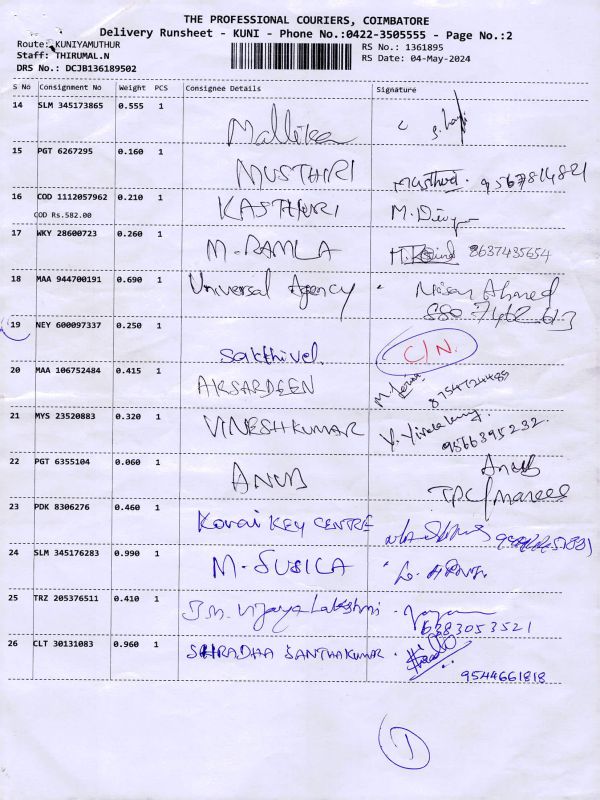 THE PROFESSIONAL COURIERS, COIMBATORE
Delivery Runsheet - KUNI - Phone No.:0422-3505555 - Page No.:2
Route: KUNIYAMUTHUR
RS No.: 1361895
Staff: THIRUMAL.N
RS Date: 04-May-2024
DRS No.: DCJB136189502
S No Consignment No Weight PCS Consignee Details Signature
14 SLM 345173865 0.555 1
Mallika
15 PGT 6267295 0.160 1
MUSTHIRI 9567814821
16 COD 1112057962 0.210 1
COD Rs.582.00
KASTHURI
17 WKY 28600723 0.260 1
M. RAMLA 8637435654
18 MAA 944700191 0.690 1
Universal Agency Nisar Ahmed
19 NEY 600097337 0.250 1
Sakthivel C/N.
20 MAA 106752484 0.415 1
AKSARDEEN 8754724485
21 MYS 23520883 0.320 1
VINESHKUMAR
9566395232.
22 PGT 6355104 0.060 1
ANUB Anub
23 PDK 8306276 0.460 1
Kovai KEY CENTRE
24 SLM 345176283 0.990 1
M. SUSILA
25 TRZ 205376511 0.410 1
Vijaya Lakshmi
6383053521
26 CLT 30131083 0.960 1
SHRADHA SANTHAKUMAR
9544661818
1